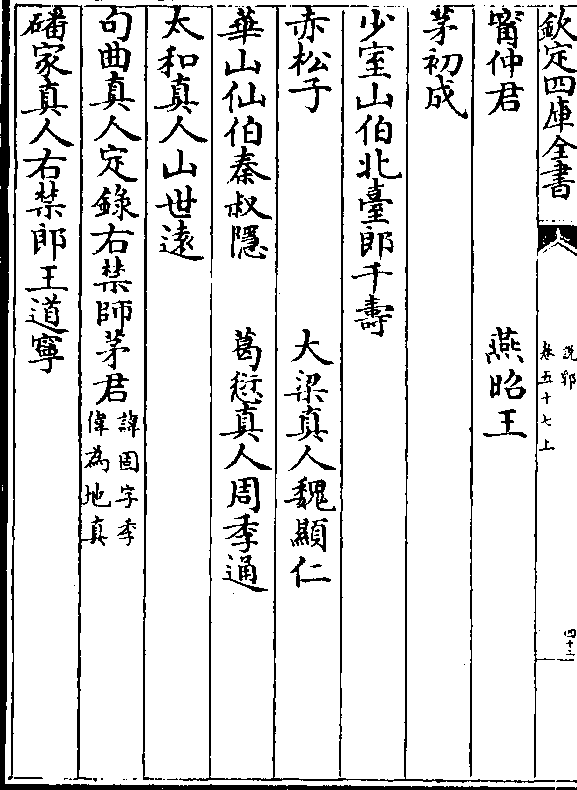 欽定四庫全書
說郛
卷五十七上
四十二
甯仲君　燕昭王
茅初成
少室山伯北臺郎千壽
赤松子　大梁真人魏顯仁
華山仙伯秦叔隱　葛愆真人周季通
太和真人山世遠
句曲真人定錄右禁師茅君諱固字季
偉為地真
磻冢真人右禁郎王道寧